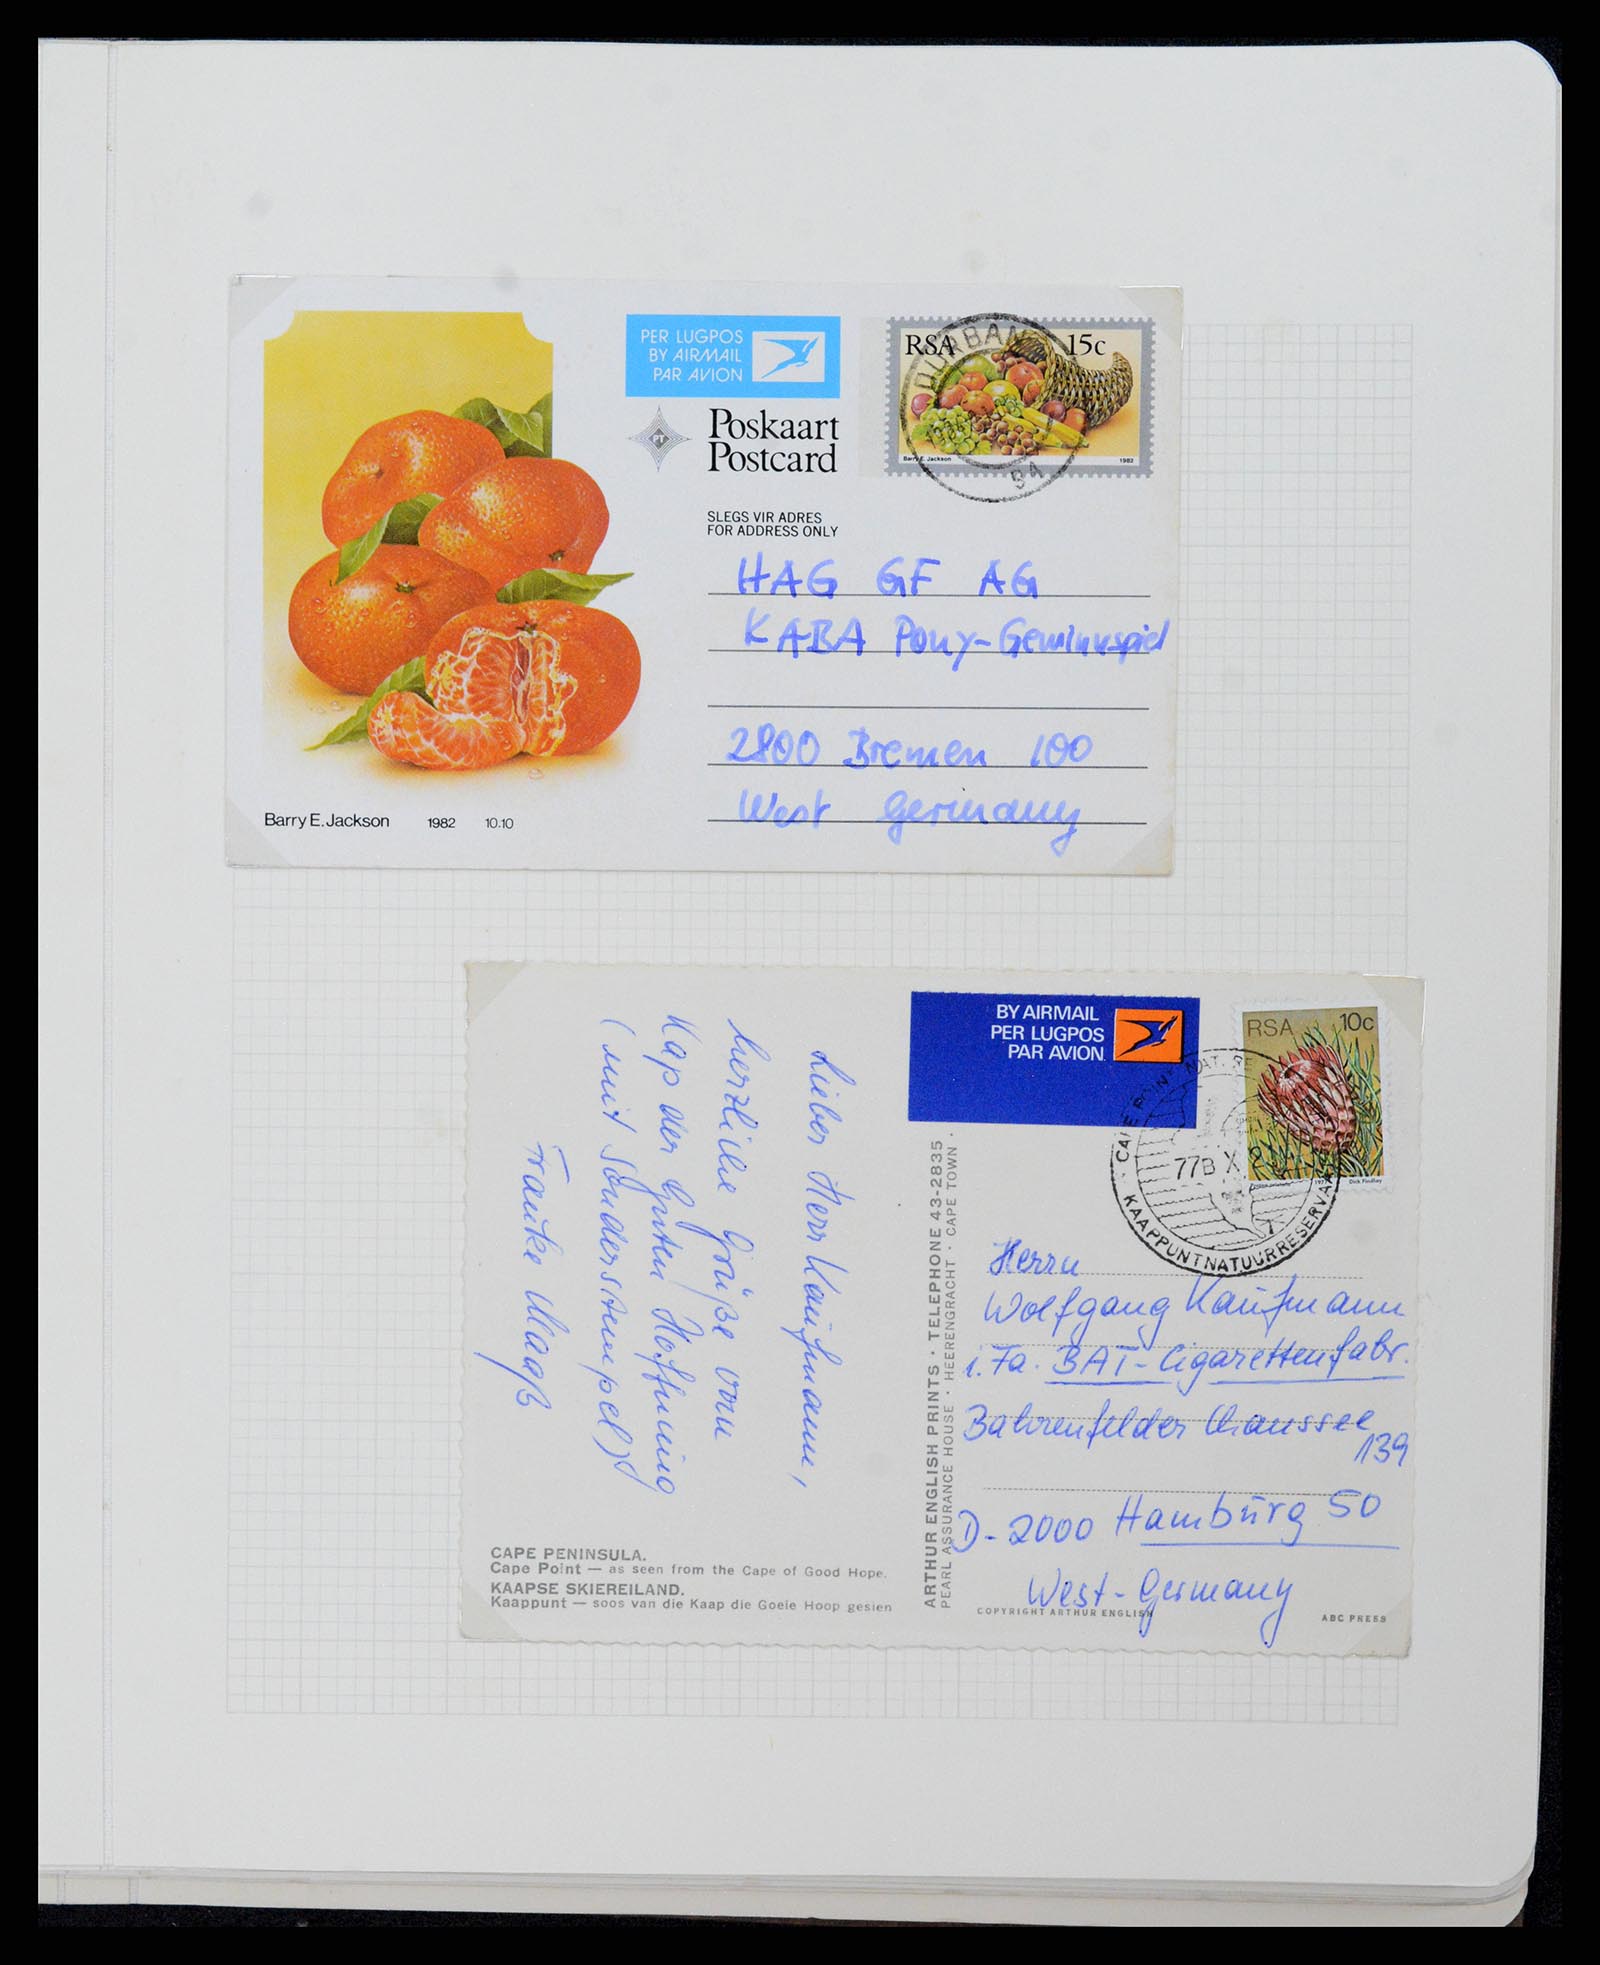 PER LUGPOS
BY AIRMAIL
PAR AVION
PT
Poskaart
Postcard
RSA 15c
DURBAN
84
Barry E. Jackson 1982
SLEGS VIR ADRES
FOR ADDRESS ONLY
HAG GF AG
KABA Pony-Gewinnspiel
2800 Bremen 100
West Germany
Barry E. Jackson 1982 10.10
BY AIRMAIL
PER LUGPOS
PAR AVION
RSA 10c
Dick Findlay
CAPE POINT NAT. RE
77B X 2
KAAPPUNTNATUURRESERVAAT
Lieber Herr Kaufmann,
herzliche Grüße vom
Kap der Guten Hoffnung
(mit Sonderstempel)
Frauke Maaß
ARTHUR ENGLISH PRINTS · TELEPHONE 43-2835
PEARL ASSURANCE HOUSE · HEERENGRACHT · CAPE TOWN ·
Herrn
Wolfgang Kaufmann
i. Fa. BAT-Cigarettenfabr.
Bahrenfelder Chaussee
139
D-2000 Hamburg 50
West-Germany
CAPE PENINSULA.
Cape Point — as seen from the Cape of Good Hope.
KAAPSE SKIEREILAND.
Kaappunt — soos van die Kaap die Goeie Hoop gesien
COPYRIGHT ARTHUR ENGLISH
ABC PRESS